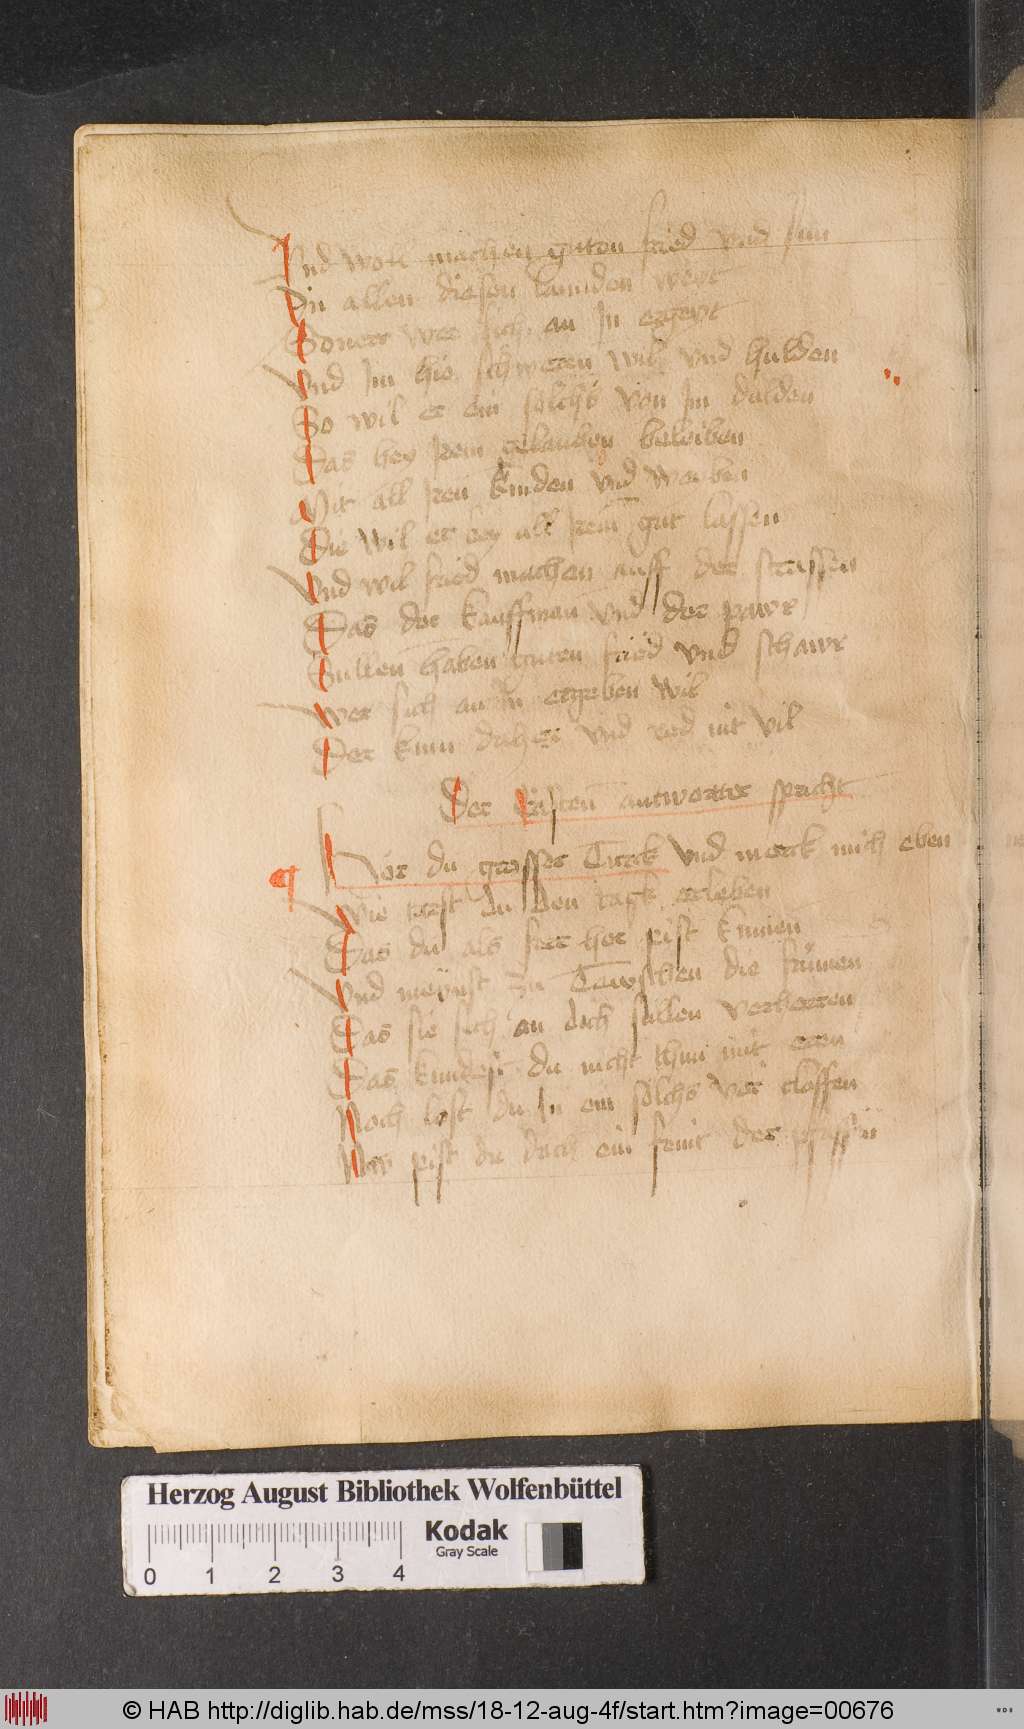 Vnd woll machen guten frid vnd sun
In allen diesen lannden weyt
Soverr wer sich an In ergeyt
Vnd Im hie schweren wil vnd hulden
So wil er ein solchs von Im dulden
Das bey Irem gelauben beleiben
Mit all Iren kinden vnd weyben
Die wil er bey all Irem gut lassen
Vnd wil frid machen auff der strassen
Das der kauffman vnd der pawr
Sullen haben guten frid vnd schawr
Wer sich an In ergeben wil
Der kum daher vnd red nit vil
Der Cristen antworter spricht
Hor du grosser Turck vnd merck mich eben
Wie tarst du den tagk erleben
Das du als ferr her pist kumen
Vnd meynst zu Tawschen die frumen
Das sie sich an dich sullen verherren
Das kundest du nicht thun mit eren
Noch lost du In ein solchs ver cloffen
Nw pist du doch ein feint der pfaffen
Herzog August Bibliothek Wolfenbüttel
Kodak
Gray Scale
0 1 2 3 4
© HAB http://diglib.hab.de/mss/18-12-aug-4f/start.htm?image=00676